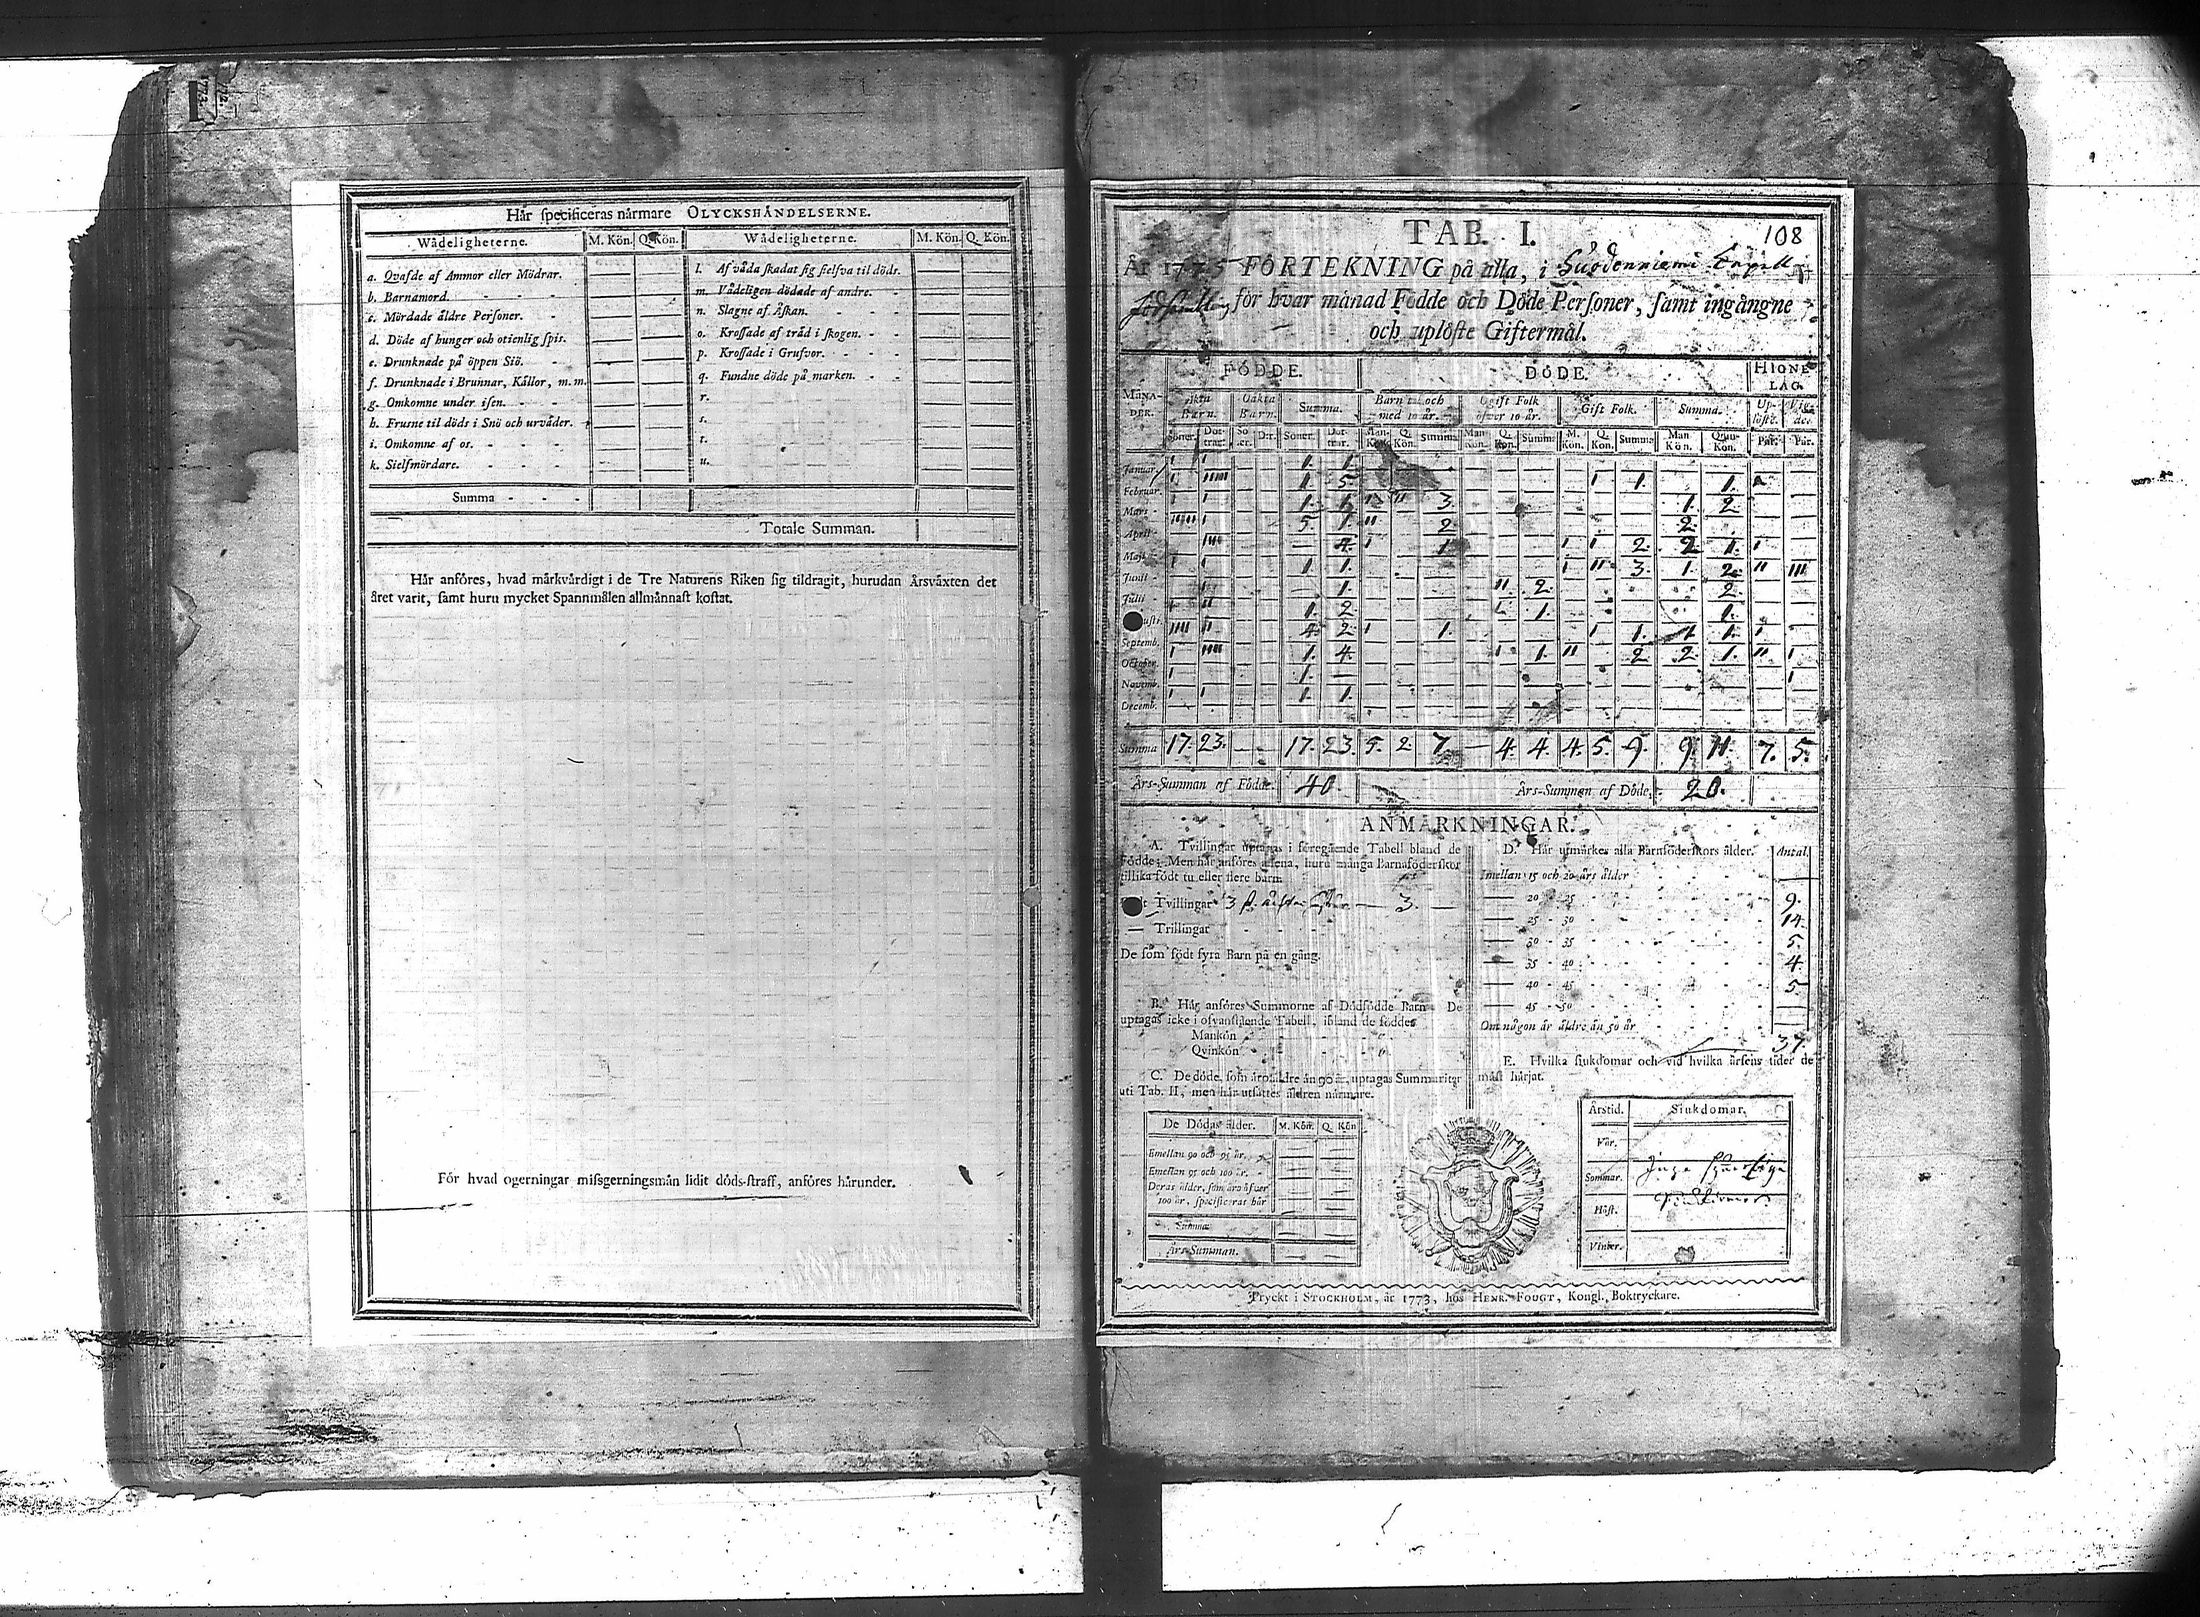 Hår specificeras nårmare OLYCKSHÅNDELSERNE.
Wådeligheterne. M. Kön. Q. Kön. Wådeligheterne. M. Kön. Q. Kön.
a. Qvafde af Ammor eller Mödrar.
b. Barnamord. - - - -
c. Mördade åldre Personer. -
d. Döde af hunger och otienlig spis.
e. Drunknade på öppen Siö. -
f. Drunknade i Brunnar, Kållor, m. m.
g. Omkomne under isen. - - -
h. Frusne til döds i Snö och urvåder.
i. Omkomne af os. - - - -
k. Sielfmördare. - - - -
l. Af våda skadat sig sielfva til döds.
m. Vådeligen dödade af andre. - -
n. Slagne af Åskan. - - - -
o. Krossade af tråd i skogen. - -
p. Krossade i Grufvor. - - - -
q. Fundne döde på marken. - -
r.
s.
t.
u.
Summa - - -
Totale Summan.
Hår anföres, hvad mårkvårdigt i de Tre Naturens Riken sig tildragit, hurudan Årsvåxten det
året varit, samt huru mycket Spannmålen allmånnast kostat.
För hvad ogerningar missgerningsmån lidit döds-straff, anföres hårunder.
TAB. I. 108
År 1775 FÖRTEKNING på alla, i Suodenniemi Capell
för hvar månad Födde och Döde Personer, samt ingångne
och uplöste Giftermål.
MÅNA-DER. FÖDDE. DÖDE. HIONELAG.
Åkta Barn. Oåkta Barn. Summa. Barn til och med 10 år. Ogift Folk öfver 10 år. Gift Folk. Summa. Uplöste. Vigde.
Söner. Döttrar. Söner. D:r. Söner. Döttrar. Man-Kön. Q. Kön. Summa Man Kön. Q. Kön. Summa M. Kön. Q. Kön. Summa Man Kön. Quin-Kön. Pår. Pår.
Januar. 1. 1.
Februar. 1. 5 1. 1.
Mars - 1. 1. 3 1. 2
April - 5. 1. 2 2.
Maji - 4. 1 2. 2 1.
Junii - 1 1. 3. 1. 2
Julii - 1. 2. 2
usti. 1. 2 1. 1.
Septemb. 4 2 1. 1. 1. 1.
October. 1. 4. 1. 2 2. 1.
Novemb. 1.
Decemb. 1. 1.
Summa 17. 23. 17. 23. 5. 2. 7. 4. 4. 4. 5. 9. 9. 11. 7. 5.
Års-Summan af Födde 40. Års-Summan af Döde, 20.
ANMÅRKNINGAR.
A. Tvillingar uptagas i föregående Tabell bland de
Födde; Men hår anföres allena, huru många Barnaföderskor
tillika födt tu eller flere barn.
Tvillingar 3 3.
— Trillingar - - -
De som födt fyra Barn på en gång.
B. Hår anföres Summorne af Dödfödde Barn. De
uptagas icke i ofvanstående Tabell, ibland de föddes
Mankön - - -
Qvinkön - - -
C. De döde, som åro åldre ån 90 år, uptagas Summariter
uti Tab. II, men hår utsåttes åldren nårmare.
De Dödas ålder. M. Kön. Q. Kön
Emellan 90 och 95 år. -
Emellan 95 och 100 år. -
Deras ålder, som åro öfver
100 år, specificeras hår
Summa
Års-Summan.
D. Hår utmårkes alla Barnföderskors ålder. Antal.
Imellan 15 och 20 års ålder
— 20 - 25 9.
— 25 - 30 14.
— 30 - 35 5.
— 35 - 40 4
— 40 - 45 5.
— 45 - 50
Om någon år åldre ån 50 år
37.
E. Hvilka siukdomar och vid hvilka årsens tider de
måst hårjat.
Årstid. Siukdomar.
Vår.
Sommar.
Höst.
Vinter.
Tryckt i STOCKHOLM, år 1773, hos HENR. FOUGT, Kongl. Boktryckare.